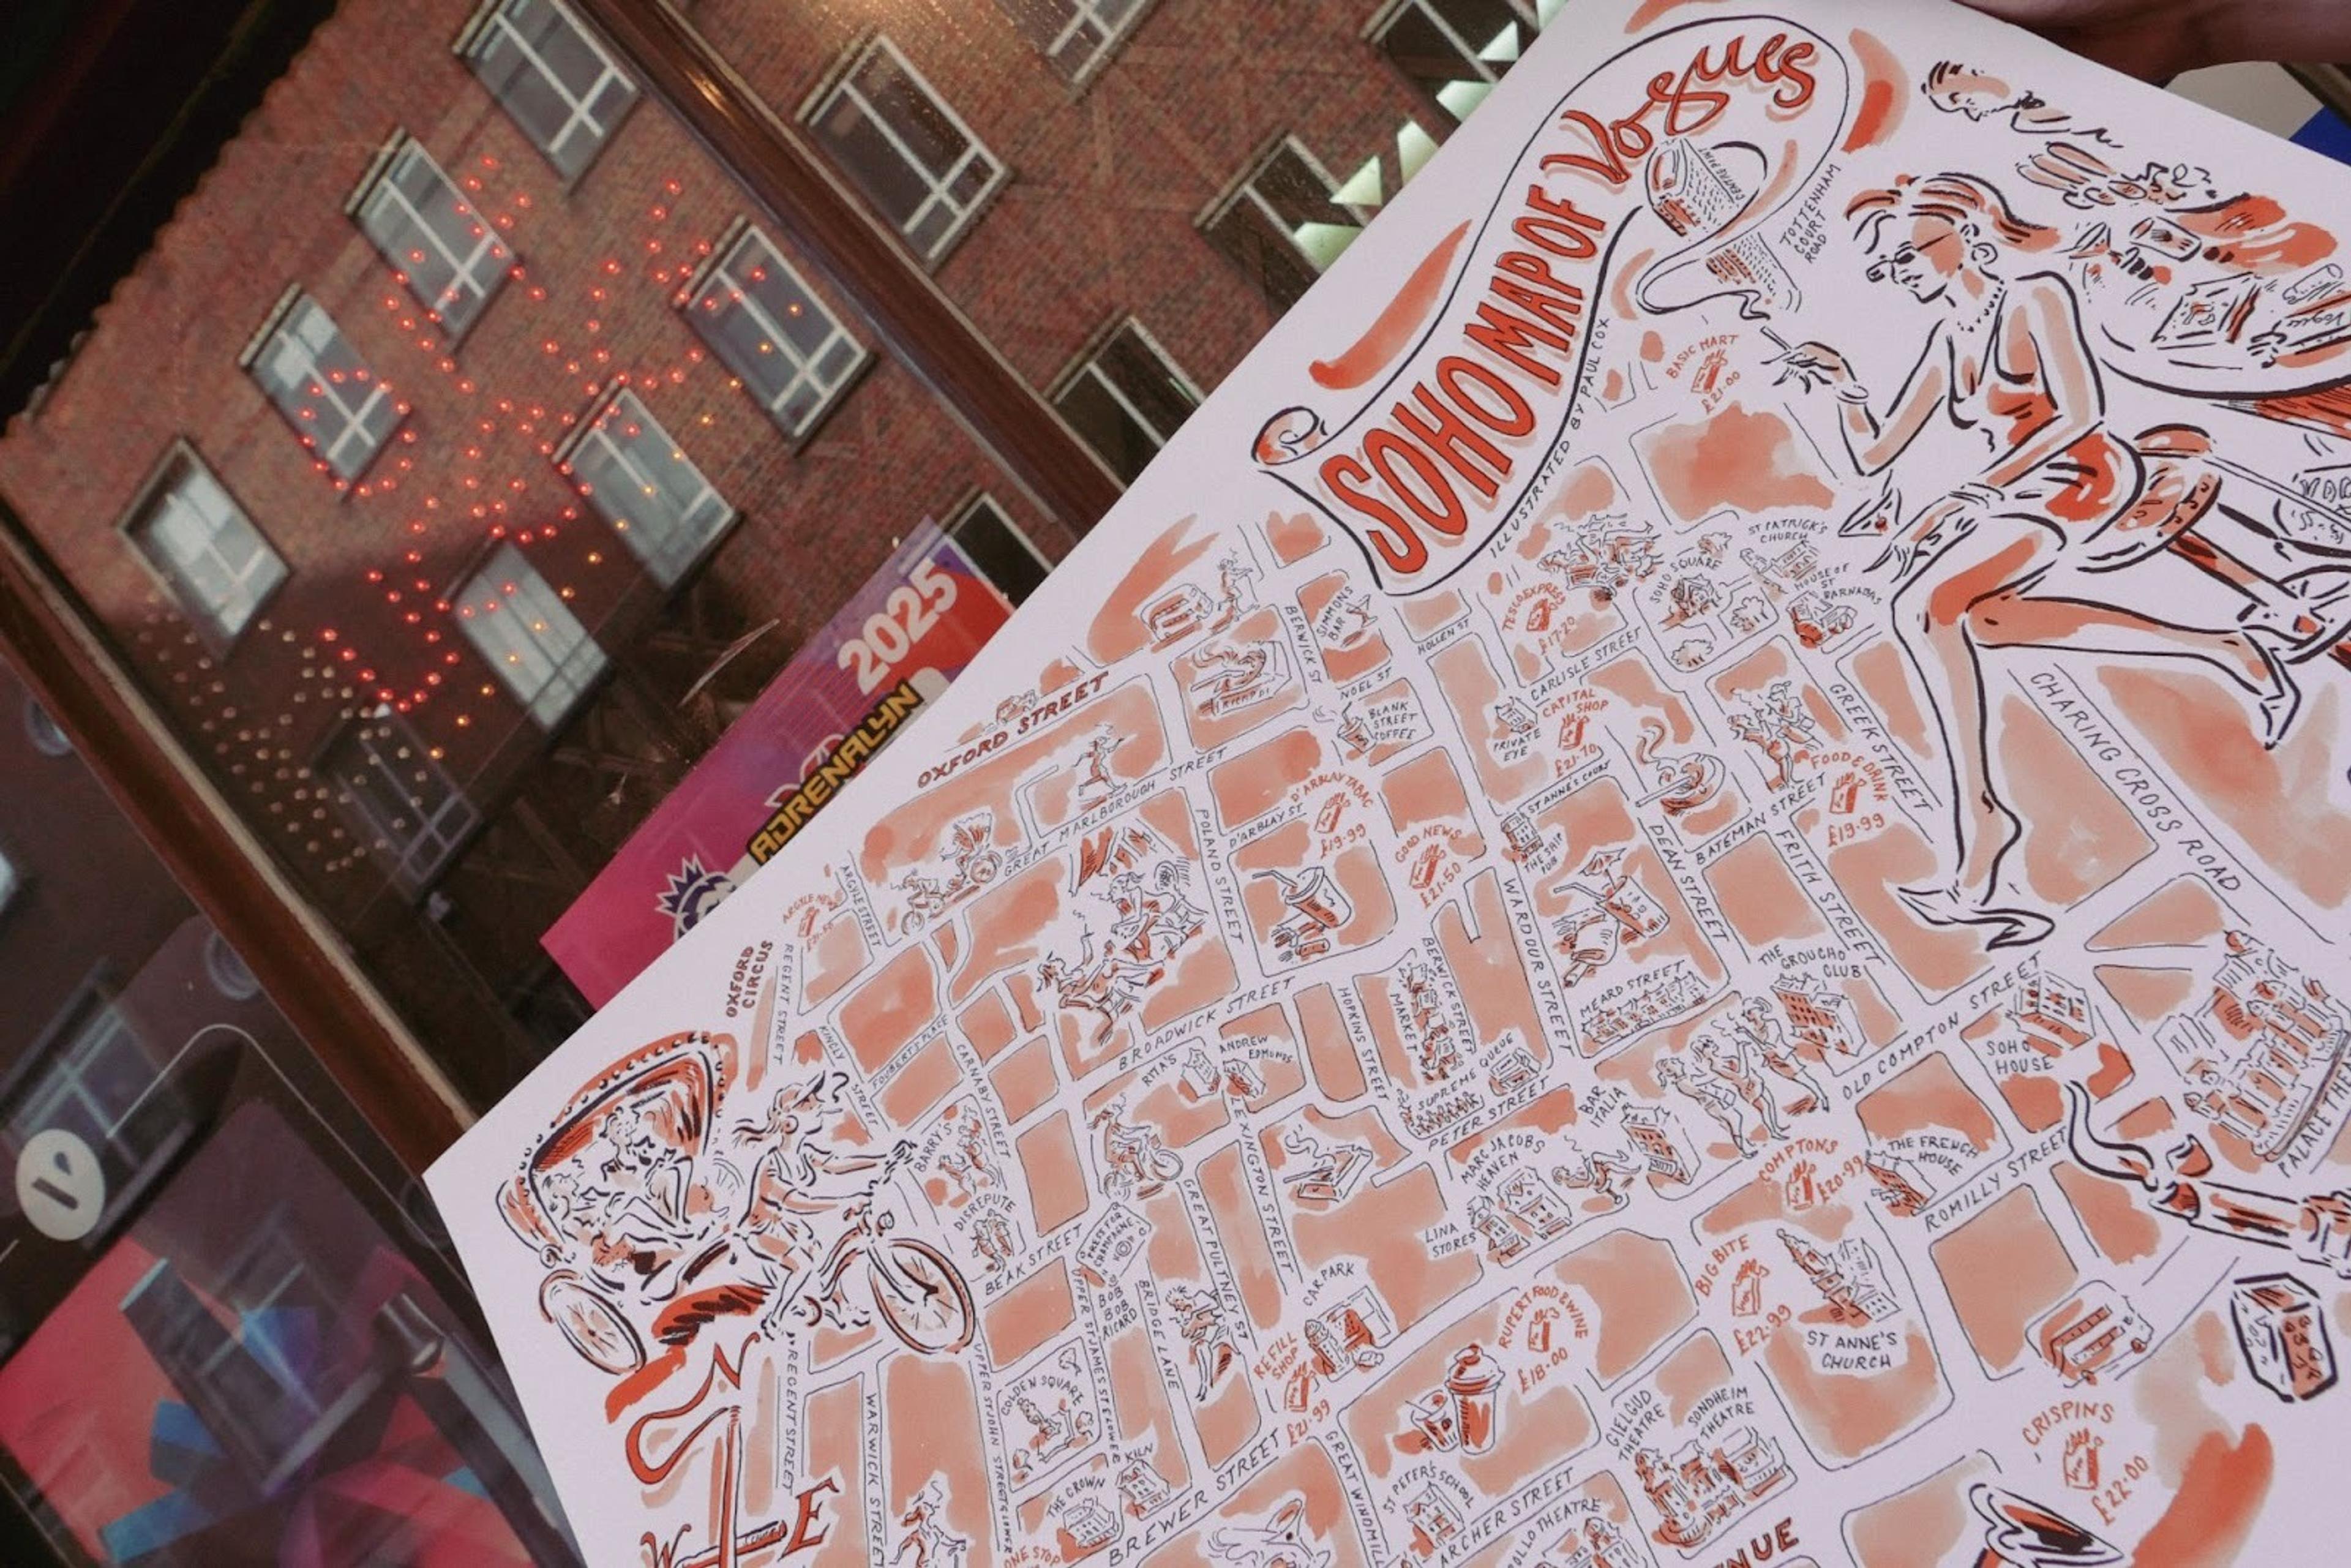 SOHO MAP OF Vogues
CENTRE POINT
TOTTENHAM
COURT
ROAD
ILLUSTRATED BY PAUL COX
BASIC MART
£21.00
2025
ADRENALYN
OXFORD STREET
BERWICK ST
SIMMONS
BAR
NOEL ST
HOLLEN ST
TESCO EXPRESS
£17.20
CARLISLE STREET
SOHO SQUARE
ST PATRICK'S
CHURCH
HOUSE OF
ST
BARNABAS
GREEK STREET
CHARING CROSS ROAD
BLANK
STREET
COFFEE
PRIVATE
EYE
CAPITAL
SHOP
£21.70
FOOD & DRINK
£19.99
GREAT MARLBOROUGH STREET
POLAND STREET
D'ARBLAY ST
D'ARBLAY TABAC
£19.99
GOOD NEWS
£21.50
ST ANNE'S COURT
THE SHIP
PUB
WARDOUR STREET
DEAN STREET
BATEMAN STREET
FRITH STREET
ARGYLE STREET
OXFORD
CIRCUS
REGENT STREET
KINGLY STREET
FOUBERT'S PLACE
CARNABY STREET
BROADWICK STREET
RITA'S
ANDREW
EDMUNDS
HOPKINS STREET
BERWICK STREET
MARKET
SUPREME QUEUE
PETER STREET
MEARD STREET
THE GROUCHO
CLUB
OLD COMPTON STREET
SOHO
HOUSE
BAR
ITALIA
COMPTONS
£20.99
THE FRENCH
HOUSE
ROMILLY STREET
BARRY'S
DISREPUTE
BEAK STREET
PRESS FOR
CHAMPAGNE
BOB
BOB
RICARD
BRIDLE LANE
GREAT PULTNEY ST
LEXINGTON STREET
LINA
STORES
MARC JACOBS
HEAVEN
CAR PARK
REFILL
SHOP
£21.99
RUPERT FOOD & WINE
£18.00
BIG BITE
£22.99
ST ANNE'S
CHURCH
N
W
E
REGENT STREET
WARWICK STREET
GOLDEN SQUARE
THE CROWN
KILN
BREWER STREET
GREAT WINDMILL
ST PETER'S SCHOOL
ARCHER STREET
GIELGUD
THEATRE
SONDHEIM
THEATRE
APOLLO THEATRE
CRISPINS
£22.00
ONE STOP